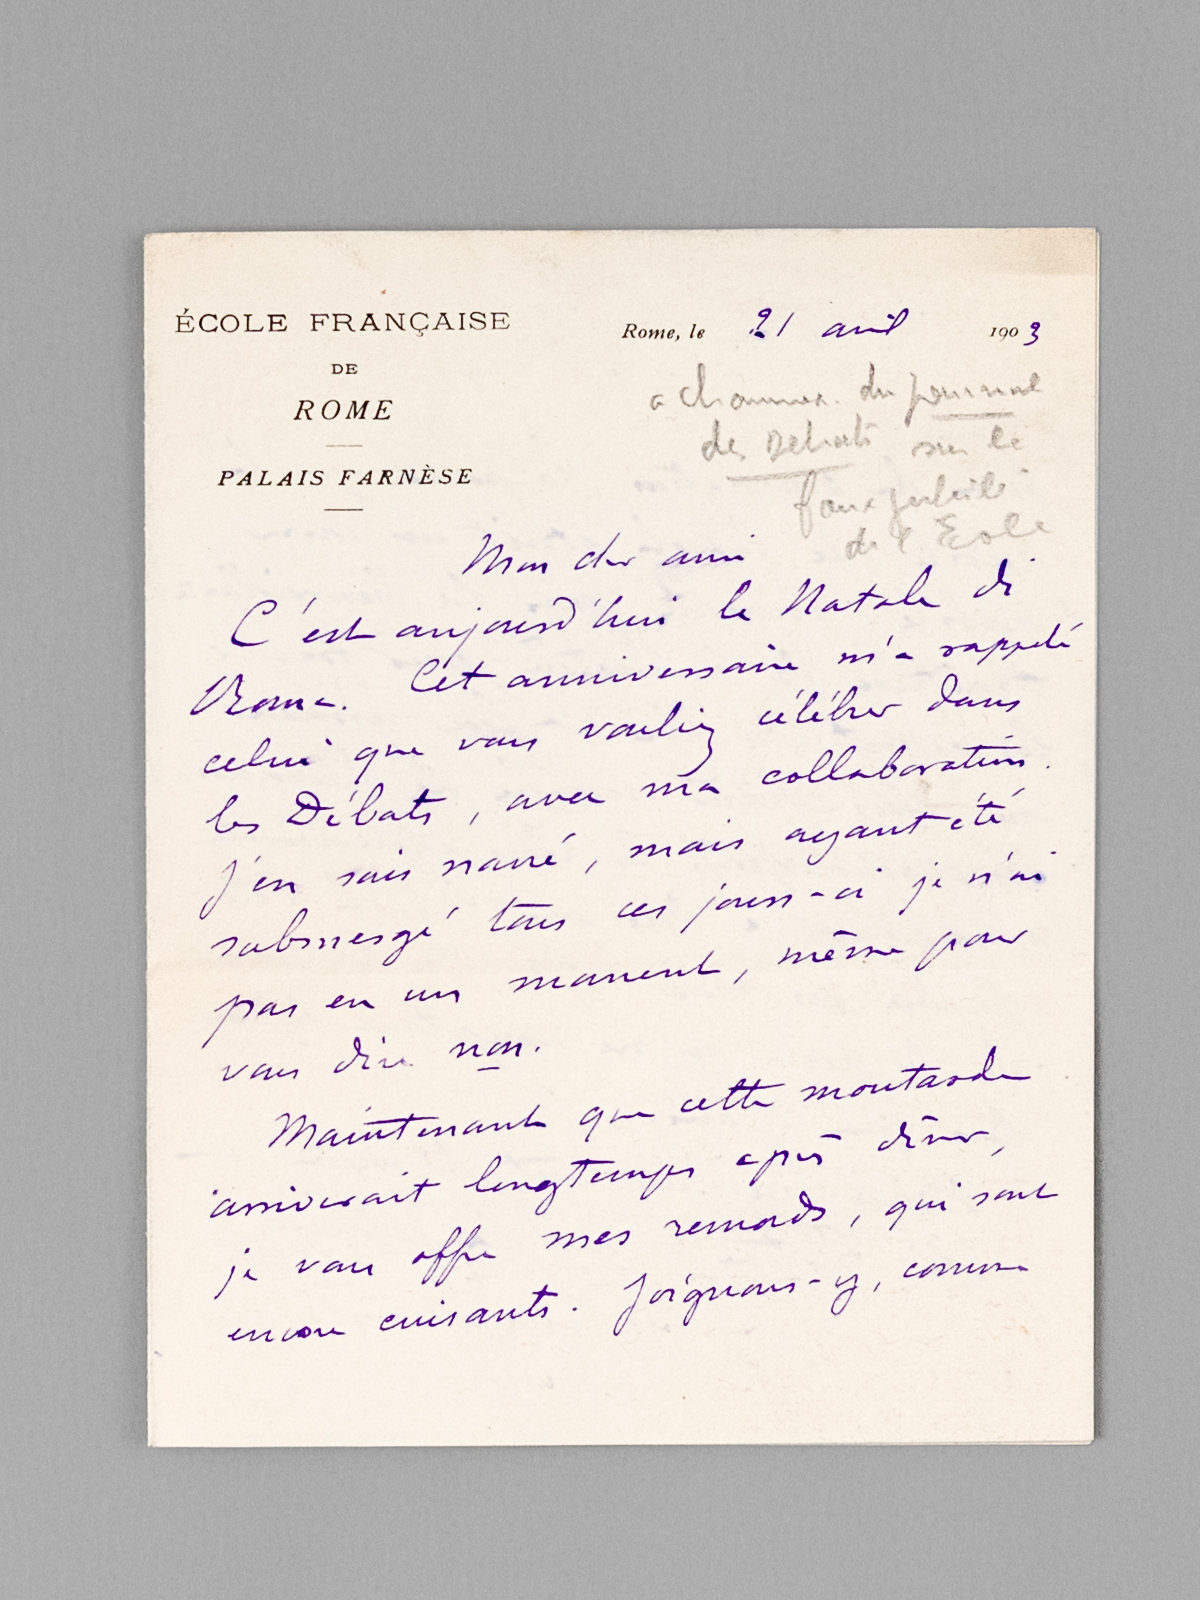 ÉCOLE FRANÇAISE
DE
ROME
PALAIS FARNÈSE
Rome, le 21 avril 1903
a Chaumeix du journal
des Debats sur le
faux jubilé
de l'Ecole
Mon cher ami
C'est aujourd'hui le Natale di
Roma. Cet anniversaire m'a rappelé
celui que vous vouliez célébrer dans
les Débats, avec ma collaboration.
J'en suis navré, mais ayant été
submergé tous ces jours-ci je n'ai
pas eu un moment, même pour
vous dire non.
Maintenant que cette moutarde
arriverait longtemps après dîner,
je vous offre mes remords, qui sont
encore cuisants. Joignons-y, comme